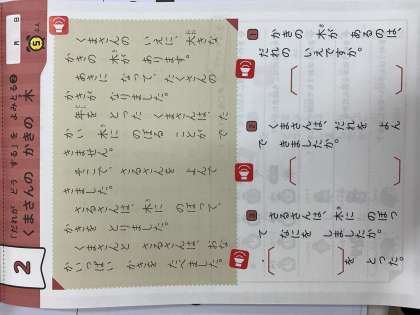 2
「だれが どう する」を よみとる②
くまさんの かきの 木
月 日
5
くまさんの いえに、大きな
かきの 木が あります。
あきに なって、たくさんの
かきが なりました。
年を とった くまさんは、た
かい 木に のぼる ことが で
きません。
そこで、さるさんを よんで
きました。
さるさんは、木に のぼって、
かきを とりました。
くまさんと さるさんは、おな
かいっぱい かきを たべました。
1 かきの 木が あるのは、
だれの いえですか。
2 くまさんは、だれを よん
で きましたか。
3 さるさんは 木に のぼっ
て なにを しましたか。
を とった。